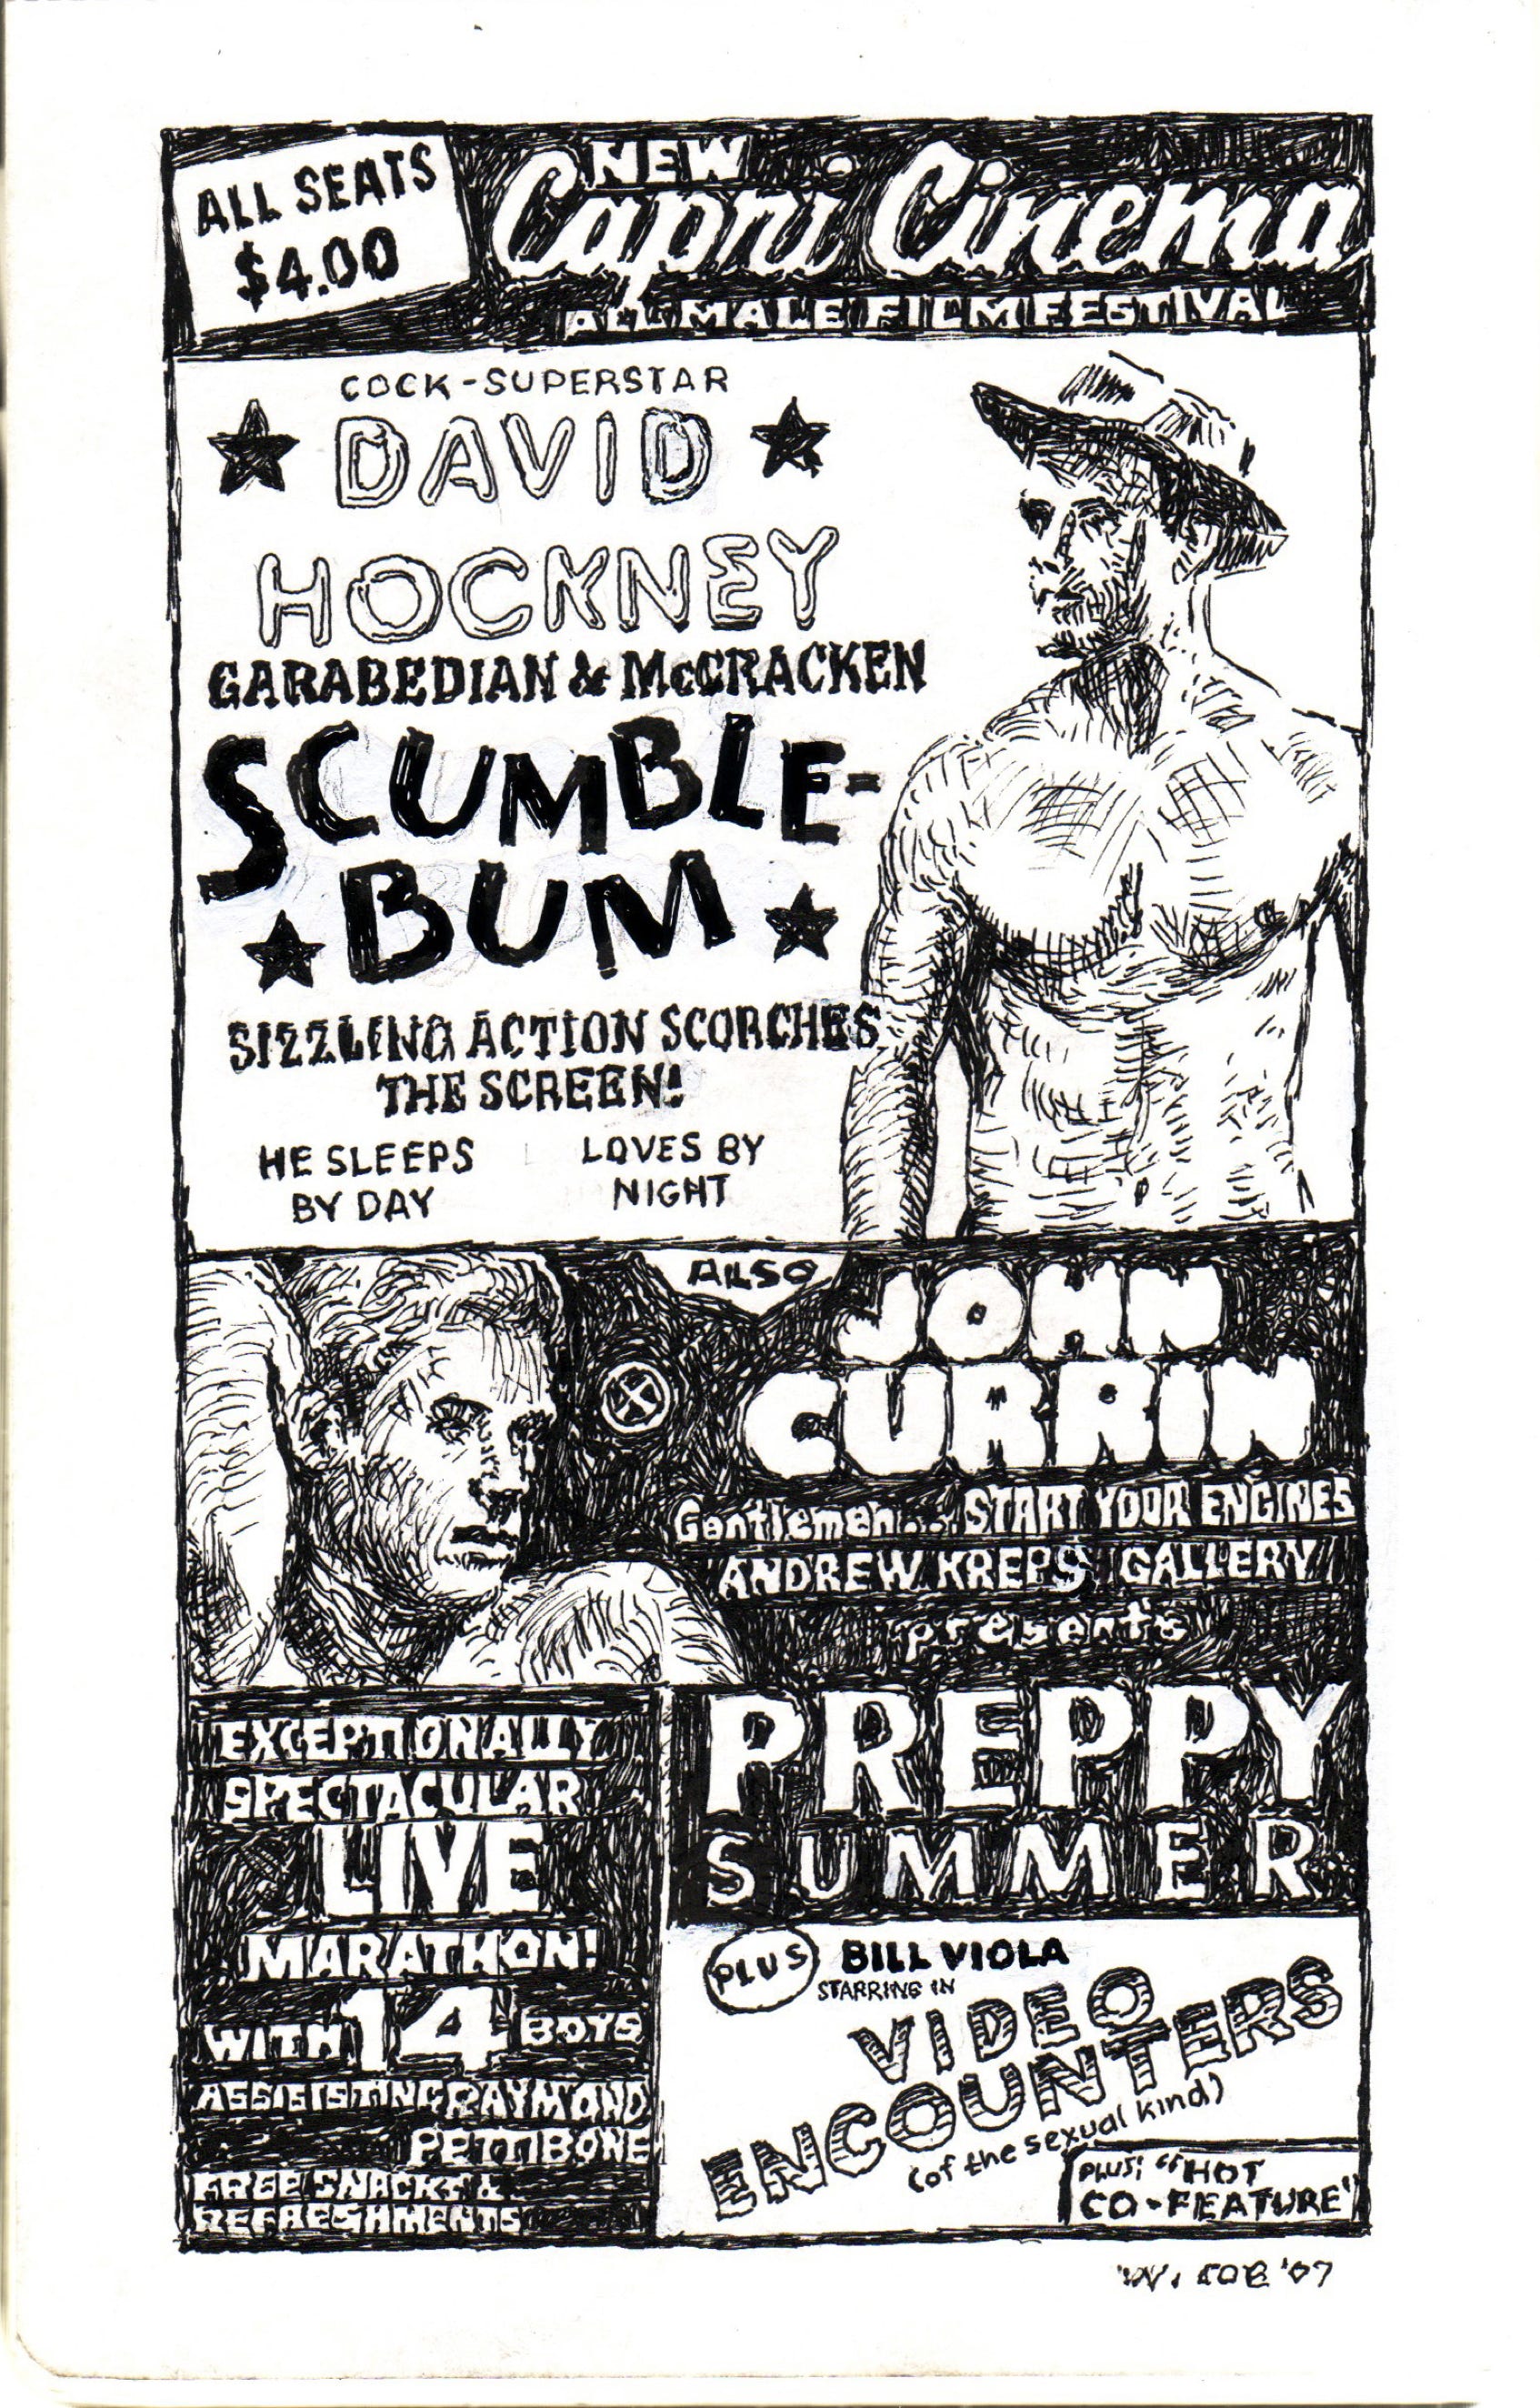 ALL SEATS
$4.00
NEW
Capri Cinema
ALL MALE FILM FESTIVAL
COCK-SUPERSTAR
DAVID
HOCKNEY
GARABEDIAN & McCRACKEN
SCUMBLE-
BUM
SIZZLING ACTION SCORCHES
THE SCREEN!
HE SLEEPS
BY DAY
LOVES BY
NIGHT
ALSO
JOHN
CURRIN
Gentlemen... START YOUR ENGINES
ANDREW KREPS GALLERY
presents
PREPPY
SUMMER
EXCEPTIONALLY
SPECTACULAR
LIVE
MARATHON!
WITH 14 BOYS
ASSISISTING RAYMOND
PETTIBONE
FREE SNACKS &
REFRESHMENTS
PLUS
BILL VIOLA
STARRING IN
VIDEO
ENCOUNTERS
(of the sexual kind)
PLUS: "HOT
CO-FEATURE"
'07